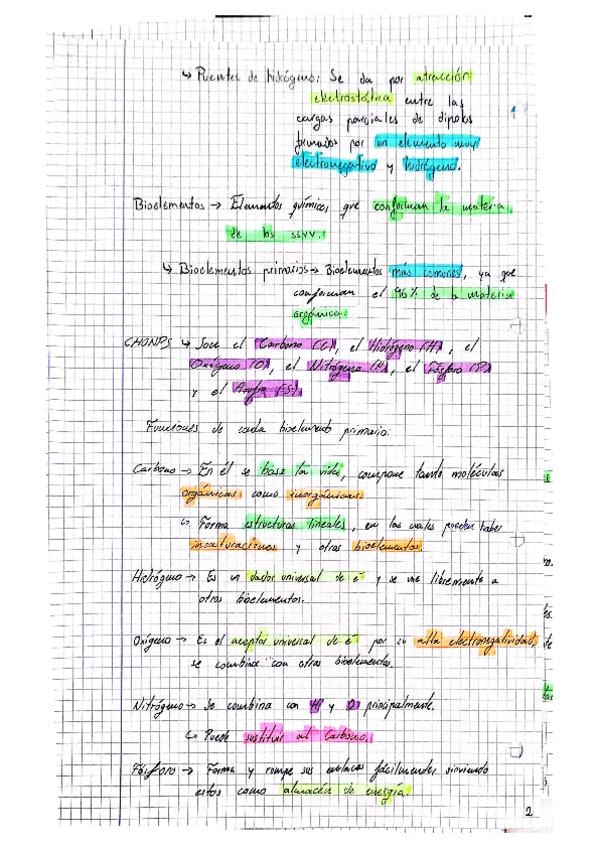 ↳ Puentes de hidrógeno: Se da por atracción
electrostática entre las
cargas parciales de dipolos
formados por un elemento muy
electronegativo y hidrógeno.
Bioelementos → Elementos químicos que conforman la materia
de los ssvv.
↳ Bioelementos primarios → Bioelementos más comunes, ya que
conforman el 96% de la materia
orgánica.
CHONPS ↳ Son el Carbono (C), el Hidrógeno (H), el
Oxígeno (O), el Nitrógeno (N), el Fósforo (P)
y el Azufre (S).
Funciones de cada bioelemento primario:
Carbono → En él se basa la vida, compone tanto moléculas
orgánicas como inorgánicas.
↳ Forma estructuras lineales, en las cuales pueden haber
insaturaciones y otros bioelementos.
Hidrógeno → Es un dador universal de e⁻ y se une libremente a
otros bioelementos.
Oxígeno → Es el aceptor universal de e⁻ por su alta electronegatividad,
se combina con otros bioelementos.
Nitrógeno → Se combina con H y O principalmente.
↳ Puede sustituir al Carbono.
Fósforo → Forma y rompe sus enlaces fácilmente sirviendo
estos como almacén de energía.
2